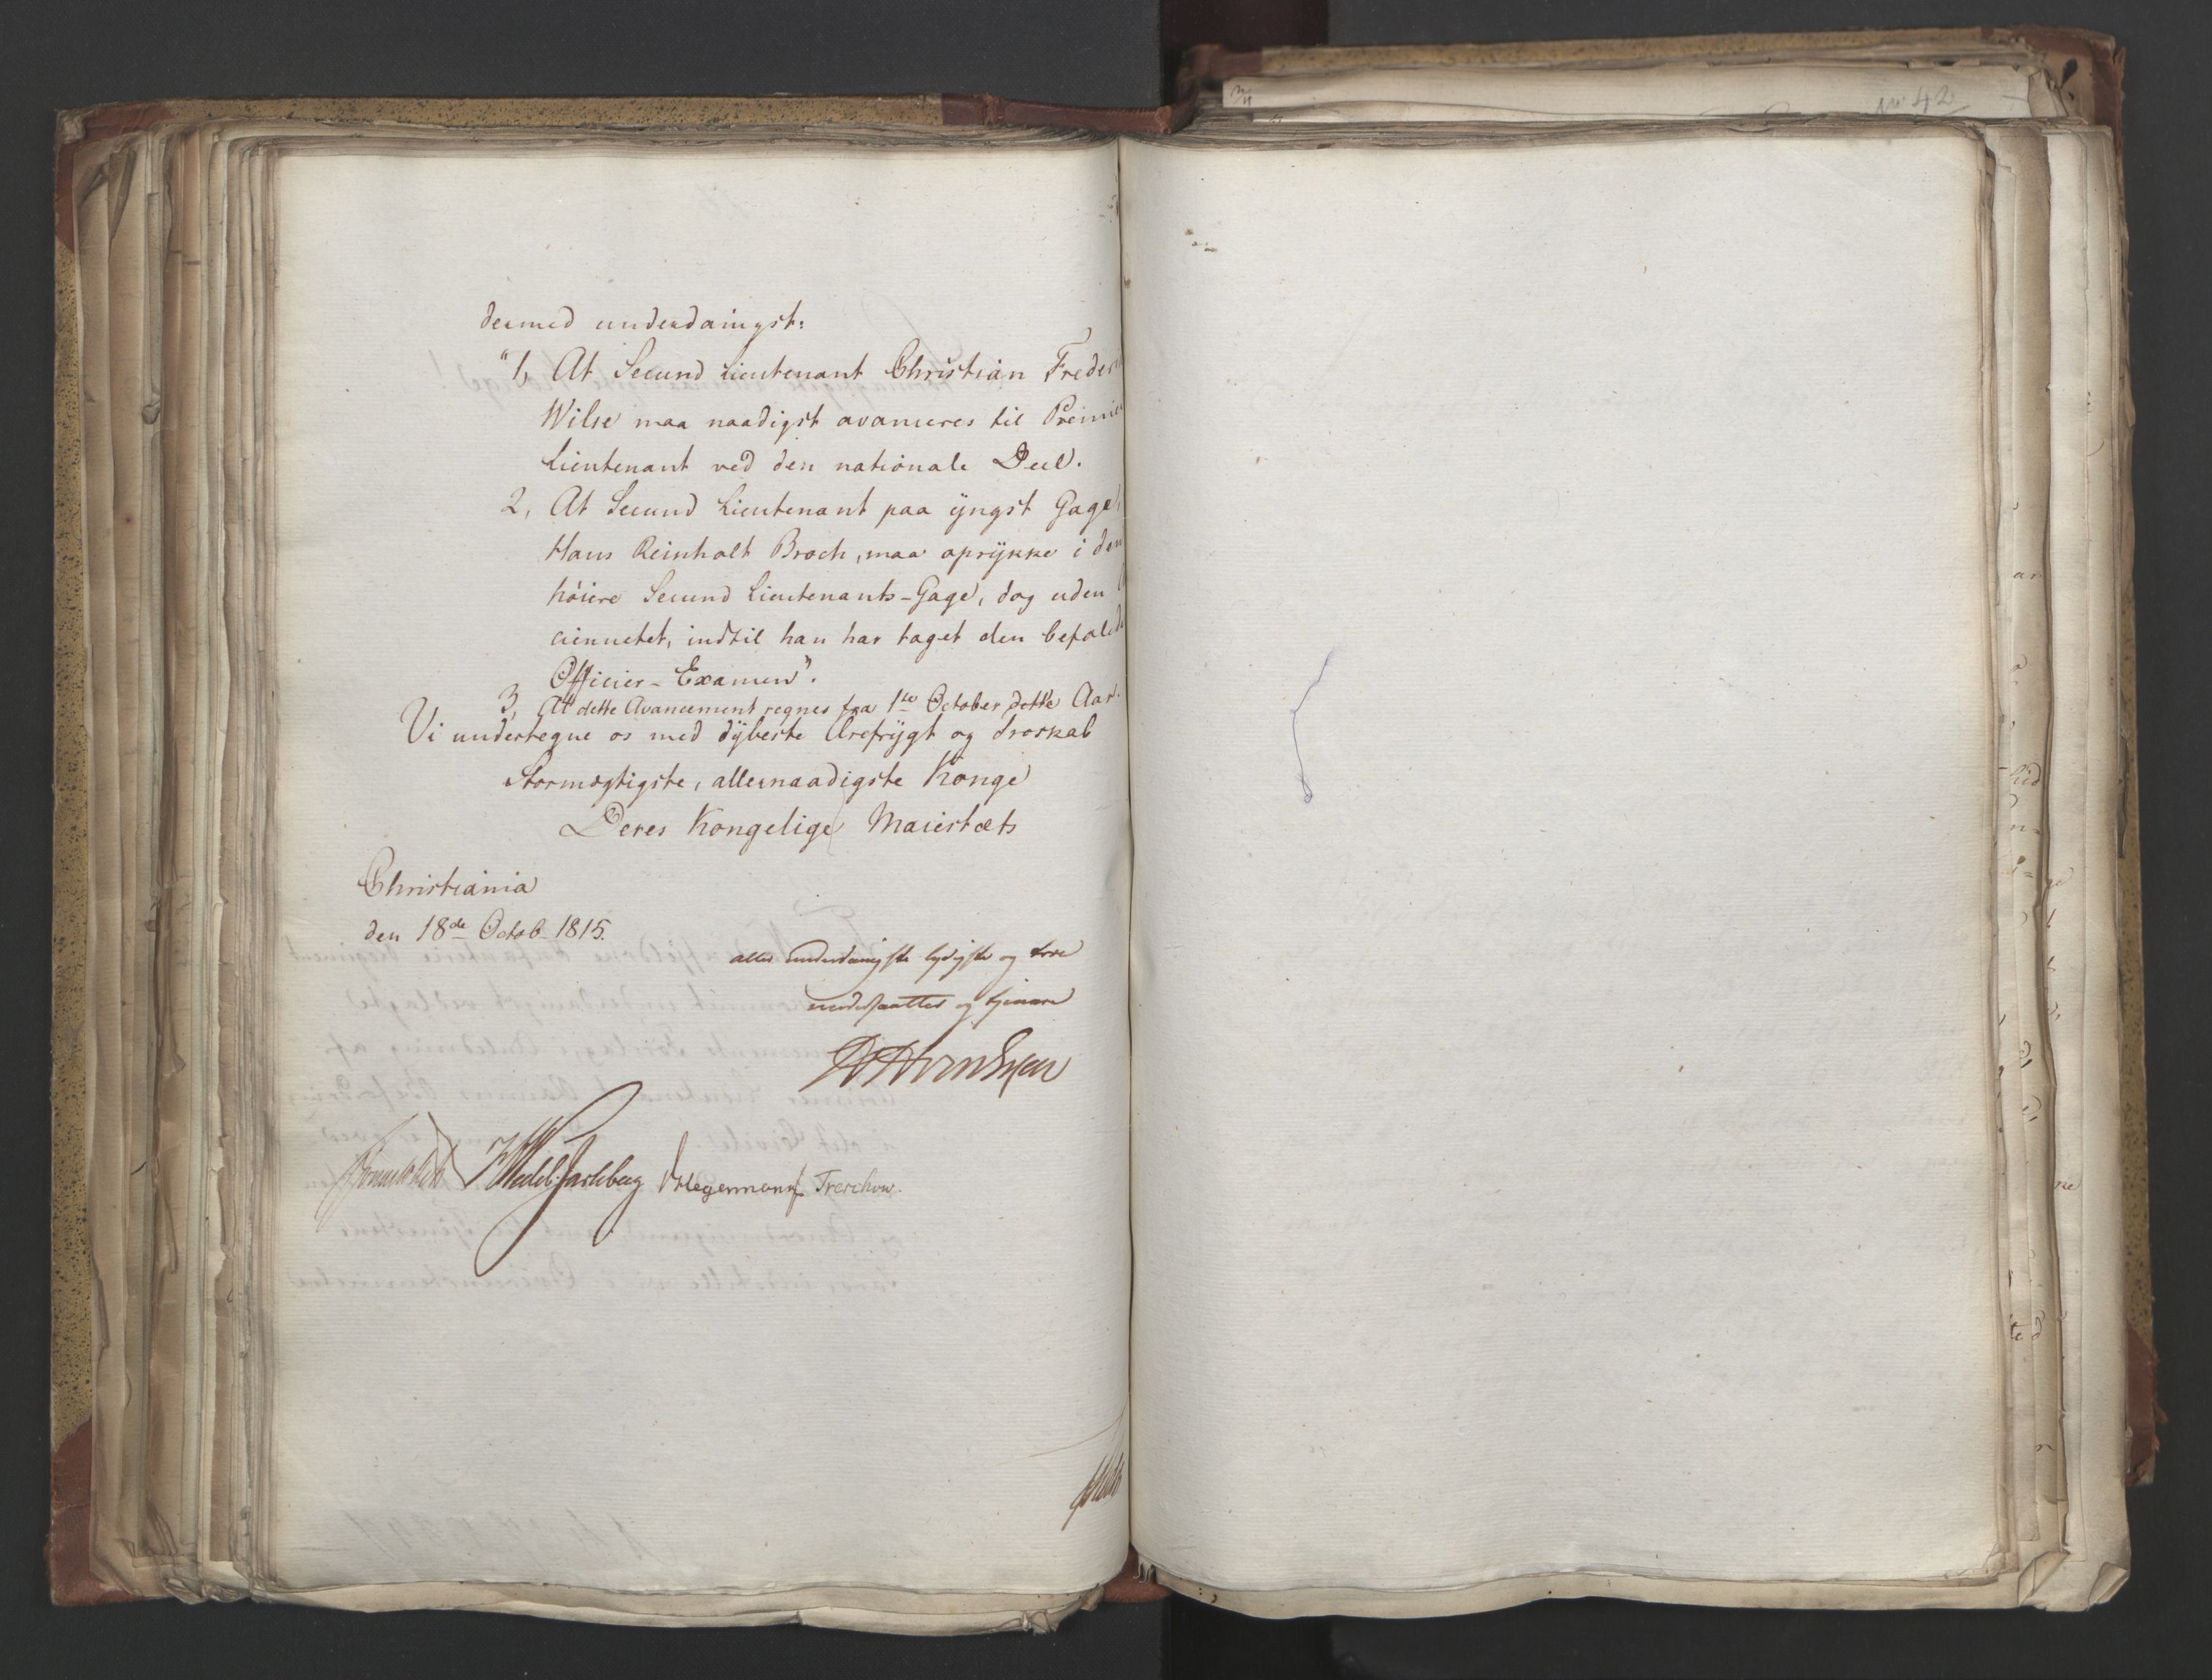 № 42
dermed underdanigst:
"1, At Secund Lieutenant Christian Frederi
Wilse maa naadigst avanceres til Premier
Lieutenant ved den nationale Deel.
2, At Secund Lieutenant paa yngst Gage,
Hans Reinholt Broch, maa oprÿkke i den
höiere Secund Lieutenants-Gage, dog uden
ciennetet, indtil han har taget den befalede
Officier-Examen".
3, At dette Avancement regnes fra 1ste October dette Aar.
Vi undertegne os med dÿbeste Ærefrÿgt og Troskab
Stormægtigste, allernaadigste Konge
Deres Kongelige Maiestæts
Christiania
den 18de Octob. 1815.
aller underdanigste lydigste og troe
undersaatter og tjenere
HWedel Jarlsberg Hegermann Treschow.